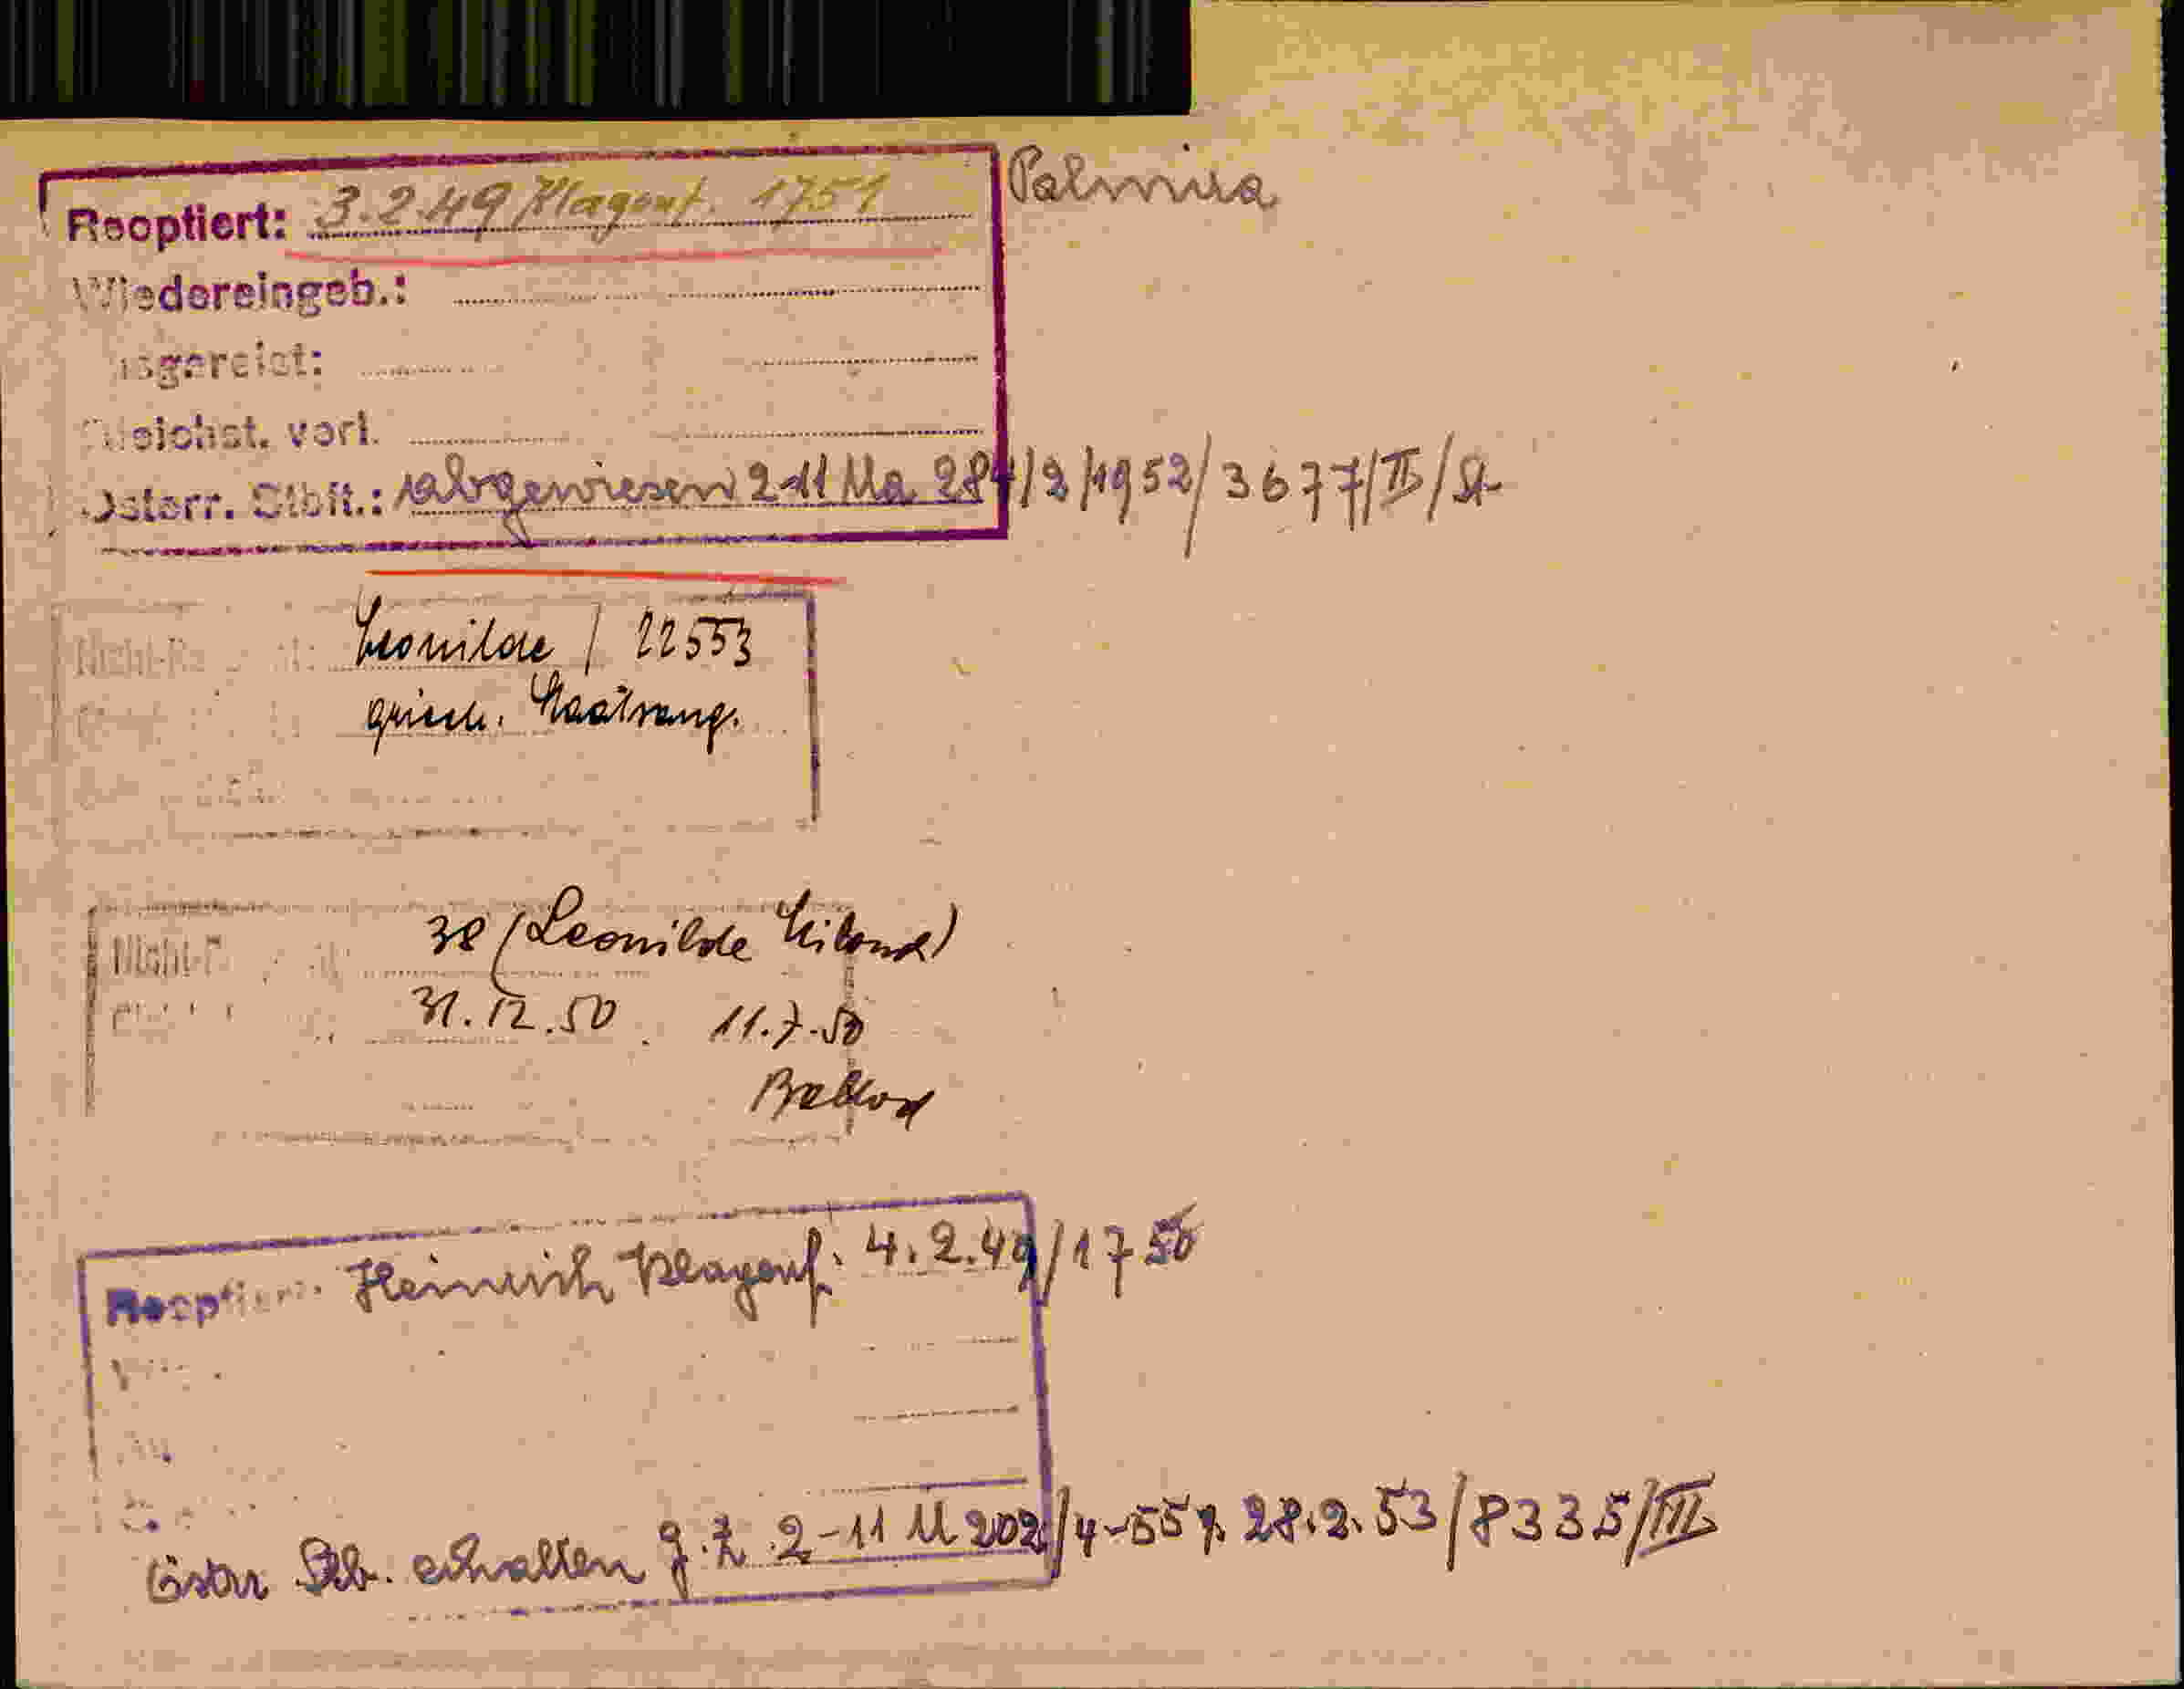 Reoptiert: 3.2.49 Klagenf. 1751 Palmira
Wiedereingeb.:
usgereist:
leichst. vorl.
Österr. Stbft.: abgewiesen 2-11 Ma 284/2/1952/3677/II/St
Nicht-Re Leonilde / 22553
griech. Staatsang.
Nicht-R 38 (Leonilde
31.12.50 11.7.50
Reoptiert: Heinrich Klagenf. 4.2.49/1750
Östrr Stb. erhalten g.Z. 2-11 M 202/4-55 28.2.53/8335/III